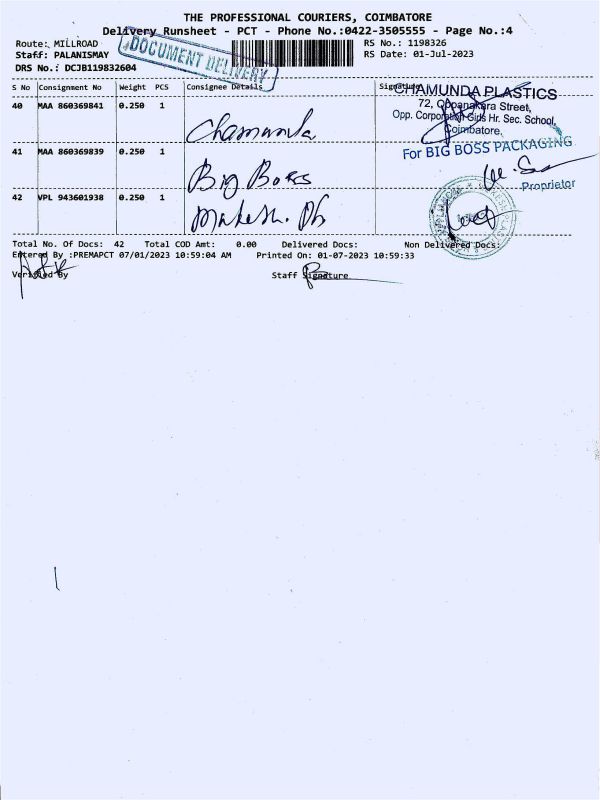 THE PROFESSIONAL COURIERS, COIMBATORE
Delivery Runsheet - PCT - Phone No.:0422-3505555 - Page No.:4
Route: MILLROAD
RS No.: 1198326
Staff: PALANISMAY
RS Date: 01-Jul-2023
DRS No.: DCJB119832604
DOCUMENT DELIVERY
S No Consignment No Weight PCS Consignee Details Signature
40 MAA 860369841 0.250 1 Chamunda
CHAMUNDA PLASTICS
72, Oppanakara Street,
Opp. Corporation Girls Hr. Sec. School,
Coimbatore.
41 MAA 860369839 0.250 1 Big Boss
For BIG BOSS PACKAGING
Proprietor
42 VPL 943601938 0.250 1 Makesh. Ph
Total No. Of Docs: 42 Total COD Amt: 0.00 Delivered Docs: Non Delivered Docs:
Entered By :PREMAPCT 07/01/2023 10:59:04 AM Printed On: 01-07-2023 10:59:33
Verified By Staff Signature